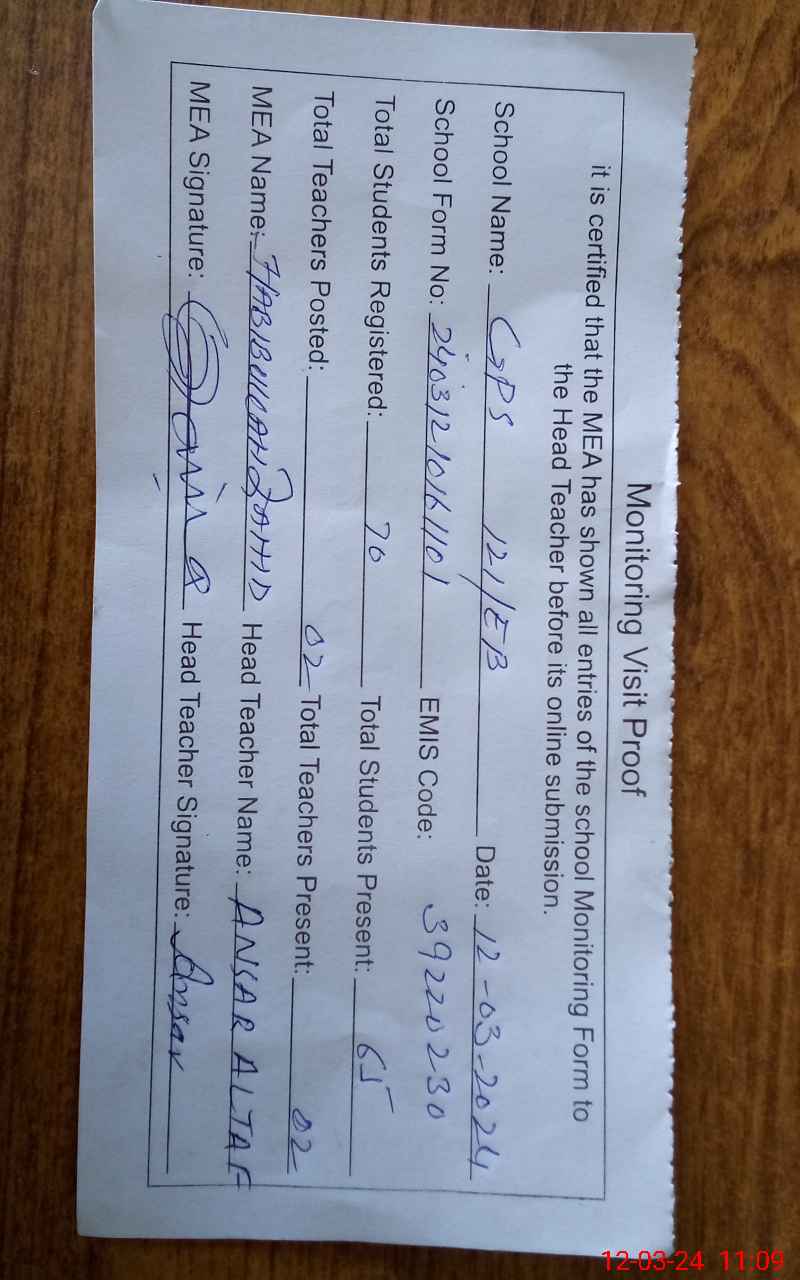 Monitoring Visit Proof
it is certified that the MEA has shown all entries of the school Monitoring Form to
the Head Teacher before its online submission.
School Name: GPS 121/EB Date: 12-03-2024
School Form No: EMIS Code: 39220230
Total Students Registered: 70 Total Students Present: 65
Total Teachers Posted: 02 Total Teachers Present: 02
MEA Name: HABIBULLAH ZAHID Head Teacher Name: ANSAR ALTAF
MEA Signature: Head Teacher Signature: Ansar
12-03-24 11:09